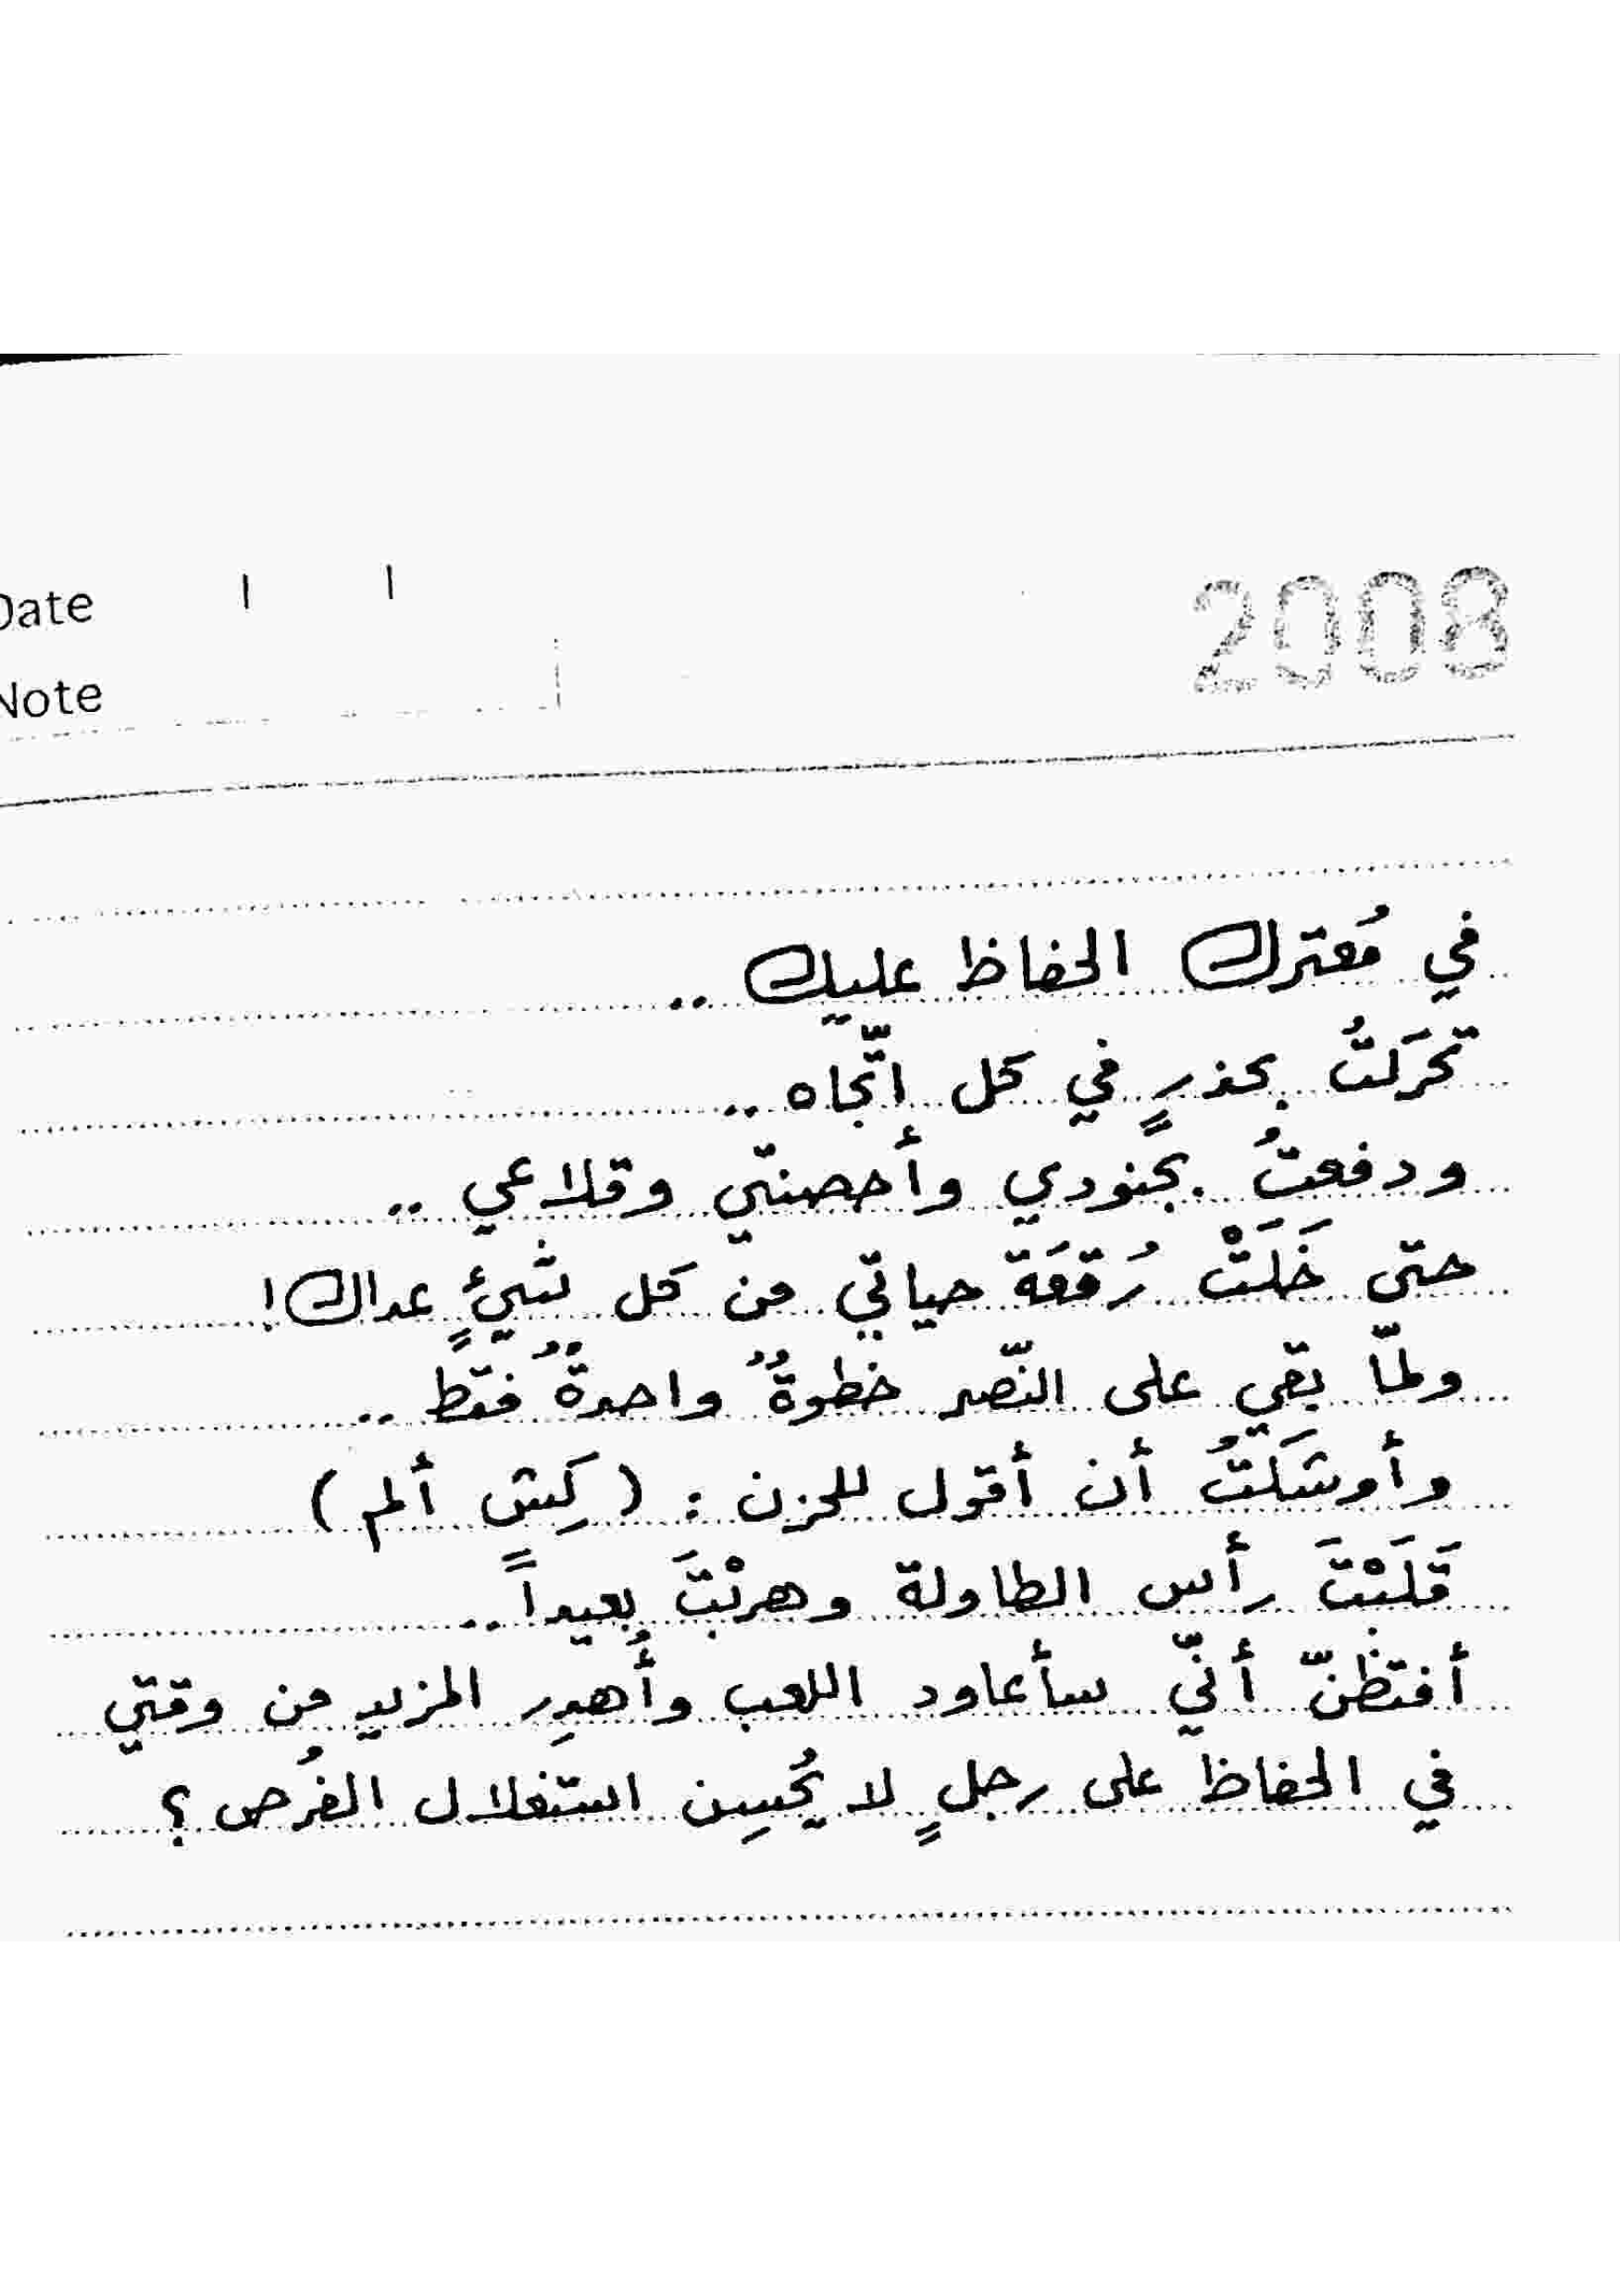 2008
Date / /
Note
في مُعترك الحفاظ عليك ..
تحرَكتُ بحذرٍ في كل اتّجاه ..
ودفعتُ بجنودي وأحصنتي وقلاعي ..
حتى خَلَتْ رُقعَة حياتي من كل شيءٍ عداك!
ولمّا بقي على النّصر خطوةٌ واحدةٌ فقط ..
وأوشَكتُ أن أقول للحزن : (كِشٍ ألم)
قَلَبْتَ رأس الطاولة وهربْتَ بعيداً ..
أفتظنّ أنّي سأعاود اللعب وأُهدِر المزيد من وقتي
في الحفاظ على رجلٍ لا يُحسِن استغلال الفُرص ؟